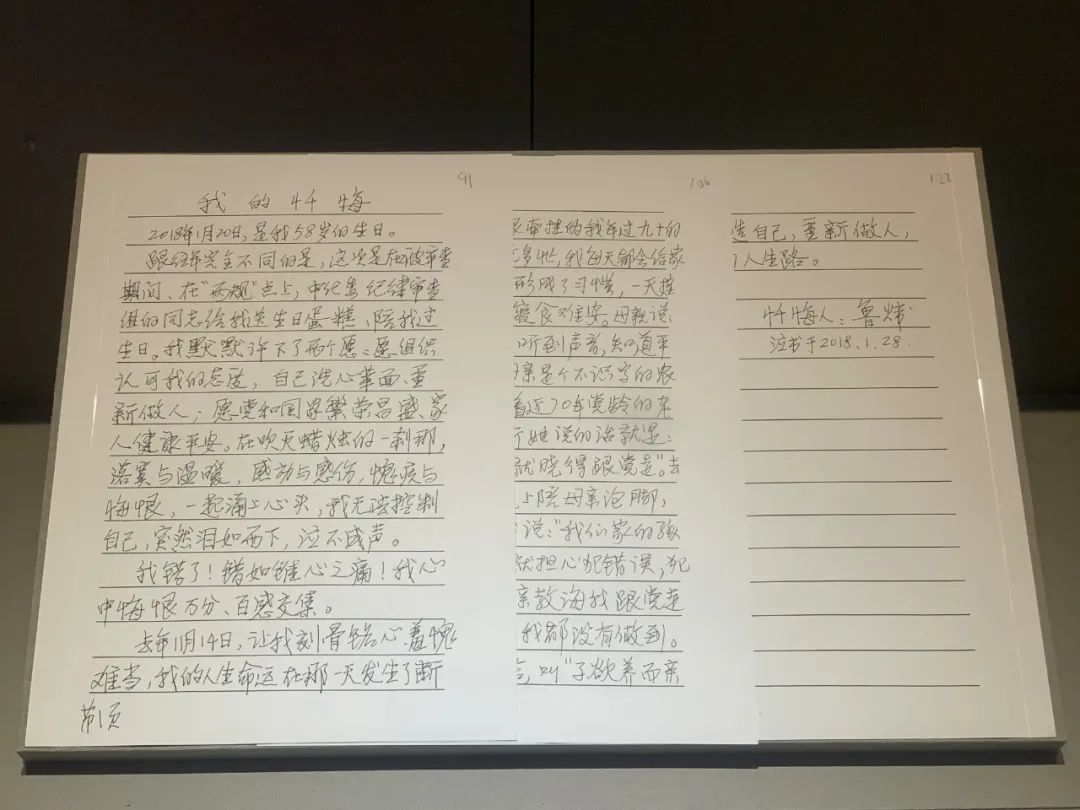 91
我的忏悔
2018年1月20日,是我58岁的生日。
跟经年完全不同的是,这次是在被审查
期间、在“两规”点上,中纪委纪律审查
组的同志给我送生日蛋糕、陪我过
生日。我默默许下了两个愿:愿组织
认可我的态度,自己洗心革面、重
新做人;愿党和国家繁荣昌盛、家
人健康平安。在吹灭蜡烛的一刹那,
落寞与温暖,感动与感伤,愧疚与
悔恨,一起涌上心头,我无法控制
自己,突然泪如雨下,泣不成声。
我错了!错如锥心之痛!我心
中悔恨万分、百感交集。
去年11月14日,让我刻骨铭心、羞愧
难当,我的人生命运在那一天发生了断
第1页
106
牵挂的我年过九十的
多忙,我每天都会给家
形成了习惯,一天接
寝食难安。母亲说
听到声音,知道平
亲是个不识字的农
着近70年党龄的老
她说的话就是:
就晓得跟党走”。去
上陪母亲泡脚,
说:“我们家的孩
就担心犯错误,犯
亲教诲我跟党走
我都没有做到。
言,叫“子欲养而亲
122
造自己,重新做人,
了人生路。
忏悔人:鲁炜
泣书于2018.1.28.